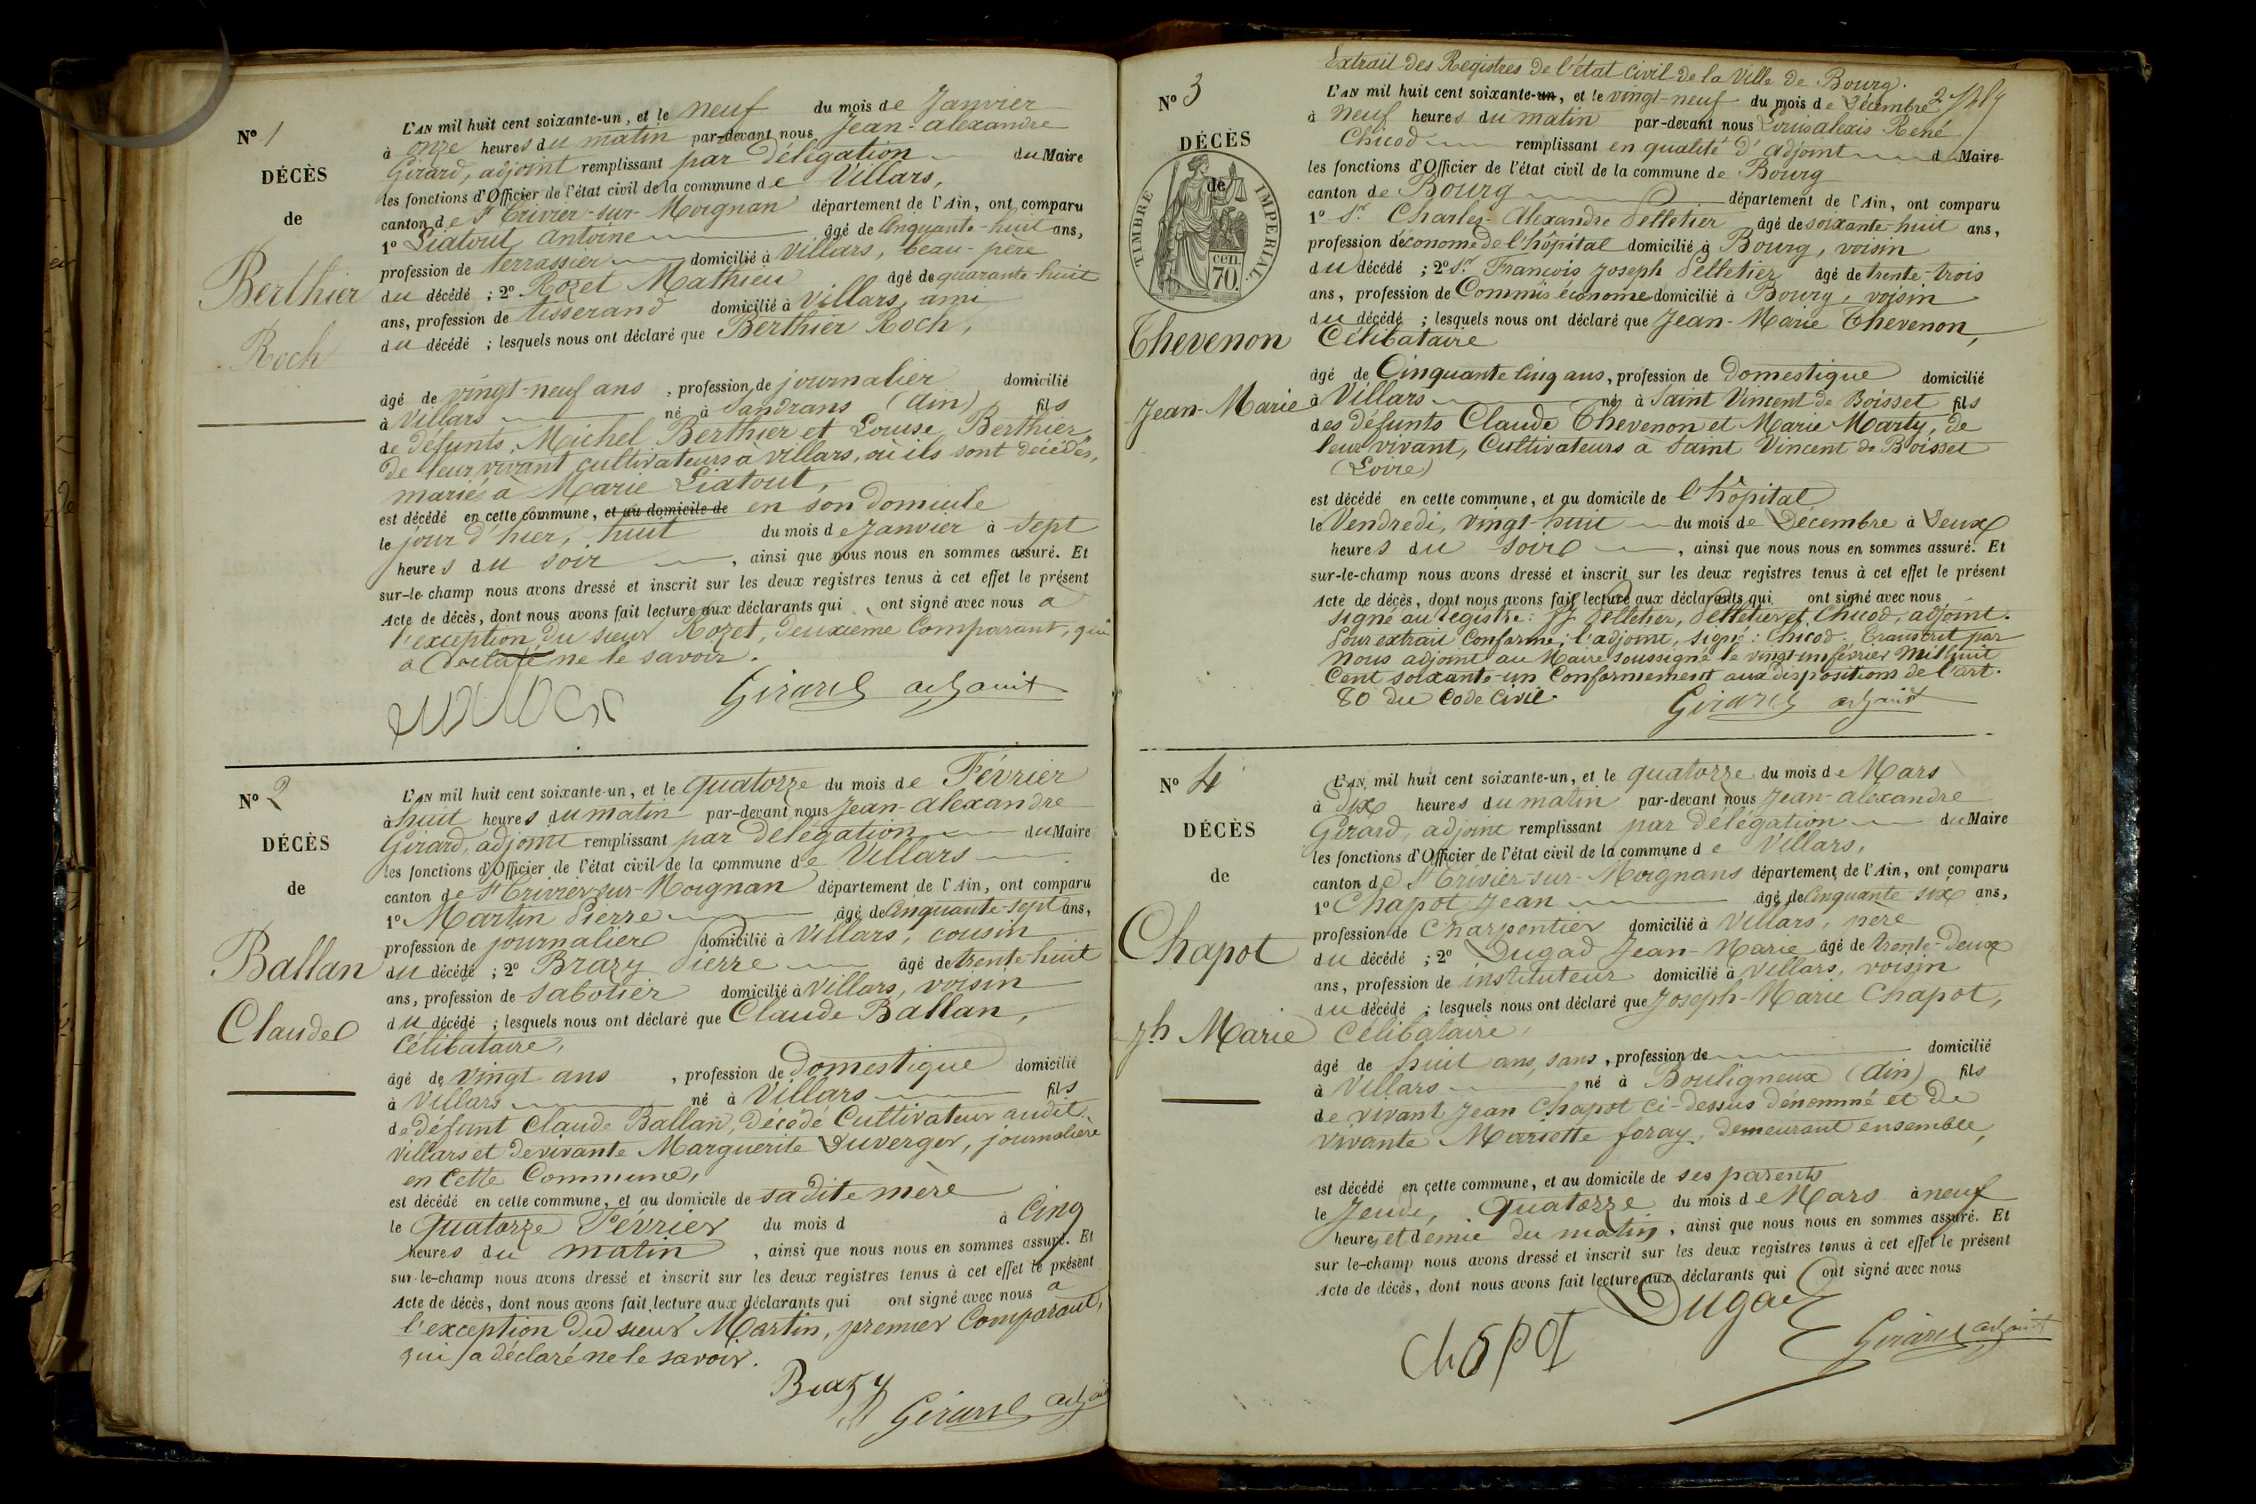 N° 1
DÉCÈS
de
Berthier
Roch
L'AN mil huit cent soixante-un, et le neuf du mois de Janvier
à onze heures du matin par-devant nous Jean-alexandre
Girard, adjoint remplissant par délégation du Maire
les fonctions d'Officier de l'état civil de la commune de Villars,
canton de St Trivier-sur-Moignan département de l'Ain, ont comparu
1° Liatout Antoine âgé de Cinquante-huit ans,
profession de terrassier domicilié à Villars, beau-père
du décédé ; 2° Rozet Mathieu âgé de quarante-huit
ans, profession de tisserand domicilié à Villars, ami
du décédé ; lesquels nous ont déclaré que Berthier Roch,
âgé de vingt-neuf ans , profession de journalier domicilié
à Villars né à Sandrans (Ain) fils
de défunts, Michel Berthier et Louise Berthier,
de leur vivant cultivateurs à villars, où ils sont décédés,
mariés à Marie Liatout,
est décédé en cette commune, et au domicile de en son domicile
le jour d'hier, huit du mois de Janvier à Sept
heures du soir , ainsi que nous nous en sommes assuré. Et
sur-le-champ nous avons dressé et inscrit sur les deux registres tenus à cet effet le présent
Acte de décès, dont nous avons fait lecture aux déclarants qui ont signé avec nous a
l'exception du sieur Rozet, deuxième Comparant, qui
a déclaré ne le savoir.
Girard adjoint
N° 2
DÉCÈS
de
Ballan
Claude
L'AN mil huit cent soixante-un, et le quatorze du mois de Février
à huit heures du matin par-devant nous Jean-alexandre
Girard, adjoint remplissant par délégation du Maire
les fonctions d'Officier de l'état civil de la commune de Villars
canton de St Trivier-sur-Moignan département de l'Ain, ont comparu
1° Martin Pierre âgé de Cinquante-sept ans,
profession de journalier domicilié à Villars, cousin
du décédé ; 2° Brazy Pierre âgé de trente-huit
ans, profession de sabotier domicilié à Villars, voisin
du décédé ; lesquels nous ont déclaré que Claude Ballan,
Célibataire,
âgé de vingt ans , profession de domestique domicilié
à Villars né à Villars fils
de défunt Claude Ballan, décédé Cultivateur audit
villars et de vivante Marguerite Duverger, journalière
en cette Commune,
est décédé en cette commune, et au domicile de sa dite mère
le quatorze Février du mois d à Cinq
heures du matin , ainsi que nous nous en sommes assuré. Et
sur-le-champ nous avons dressé et inscrit sur les deux registres tenus à cet effet le présent
Acte de décès, dont nous avons fait lecture aux déclarants qui ont signé avec nous a
l'exception du sieur Martin, premier Comparant,
qui a déclaré ne le savoir.
Brazy
Girard adjoint
Extrait des Registres de l'état civil de la Ville de Bourg.
N° 3
DÉCÈS
de
TIMBRE IMPÉRIAL
cen.
70.
Thevenon
Jean-Marie
L'AN mil huit cent soixante-un, et le vingt-neuf du mois de Décembre
à neuf heures du matin par-devant nous Louis alexis René
Chicod remplissant en qualité d'adjoint d Maire
les fonctions d'Officier de l'état civil de la commune de Bourg
canton de Bourg département de l'Ain, ont comparu
1° Sr Charles-Alexandre Pelletier âgé de soixante-huit ans,
profession d'économe de l'hôpital domicilié à Bourg, voisin
du décédé ; 2° Sr François Joseph Pelletier âgé de trente-trois
ans, profession de Commis économe domicilié à Bourg, voisin
du décédé ; lesquels nous ont déclaré que Jean-Marie Thevenon,
Célibataire
âgé de Cinquante Cinq ans, profession de domestique domicilié
à Villars né à Saint Vincent de Boisset fils
des défunts Claude Thevenon et Marie Marty, de
leur vivant, Cultivateurs à Saint Vincent de Boisset
(Loire)
est décédé en cette commune, et au domicile de l'hôpital
le Vendredi, vingt-huit du mois de Décembre à Deux
heures du soir , ainsi que nous nous en sommes assuré. Et
sur-le-champ nous avons dressé et inscrit sur les deux registres tenus à cet effet le présent
Acte de décès, dont nous avons fait lecture aux déclarants qui ont signé avec nous
signé au registre: Pelletier, Pelletier et Chicod, adjoint.
Pour extrait Conforme; l'adjoint, signé: Chicod. Transcrit par
nous adjoint au Maire soussigné le vingt-un février mil huit
Cent soixante-un Conformément aux dispositions de l'art.
80 du Code Civil.
Girard adjoint
N° 4
DÉCÈS
de
Chapot
Jh Marie
L'AN mil huit cent soixante-un, et le quatorze du mois de Mars
à Dix heures du matin par-devant nous Jean-alexandre
Girard, adjoint remplissant par délégation du Maire
les fonctions d'Officier de l'état civil de la commune de Villars,
canton de St Trivier-sur-Moignans département de l'Ain, ont comparu
1° Chapot Jean âgé de Cinquante six ans,
profession de Charpentier domicilié à Villars, père
du décédé ; 2° Dugad Jean-Marie âgé de trente-deux
ans, profession de instituteur domicilié à Villars, voisin
du décédé ; lesquels nous ont déclaré que Joseph-Marie Chapot,
Célibataire,
âgé de huit ans, sans , profession de domicilié
à Villars né à Bouligneux (Ain) fils
de vivant Jean Chapot Ci-dessus dénommé et de
vivante Mariette foray, demeurant ensemble,
est décédé en cette commune, et au domicile de ses parents
le Jeudi, quatorze du mois de Mars à neuf
heures et demie du matin , ainsi que nous nous en sommes assuré. Et
sur le-champ nous avons dressé et inscrit sur les deux registres tenus à cet effet le présent
Acte de décès, dont nous avons fait lecture aux déclarants qui ont signé avec nous
Dugad
Chapot
Girard adjoint